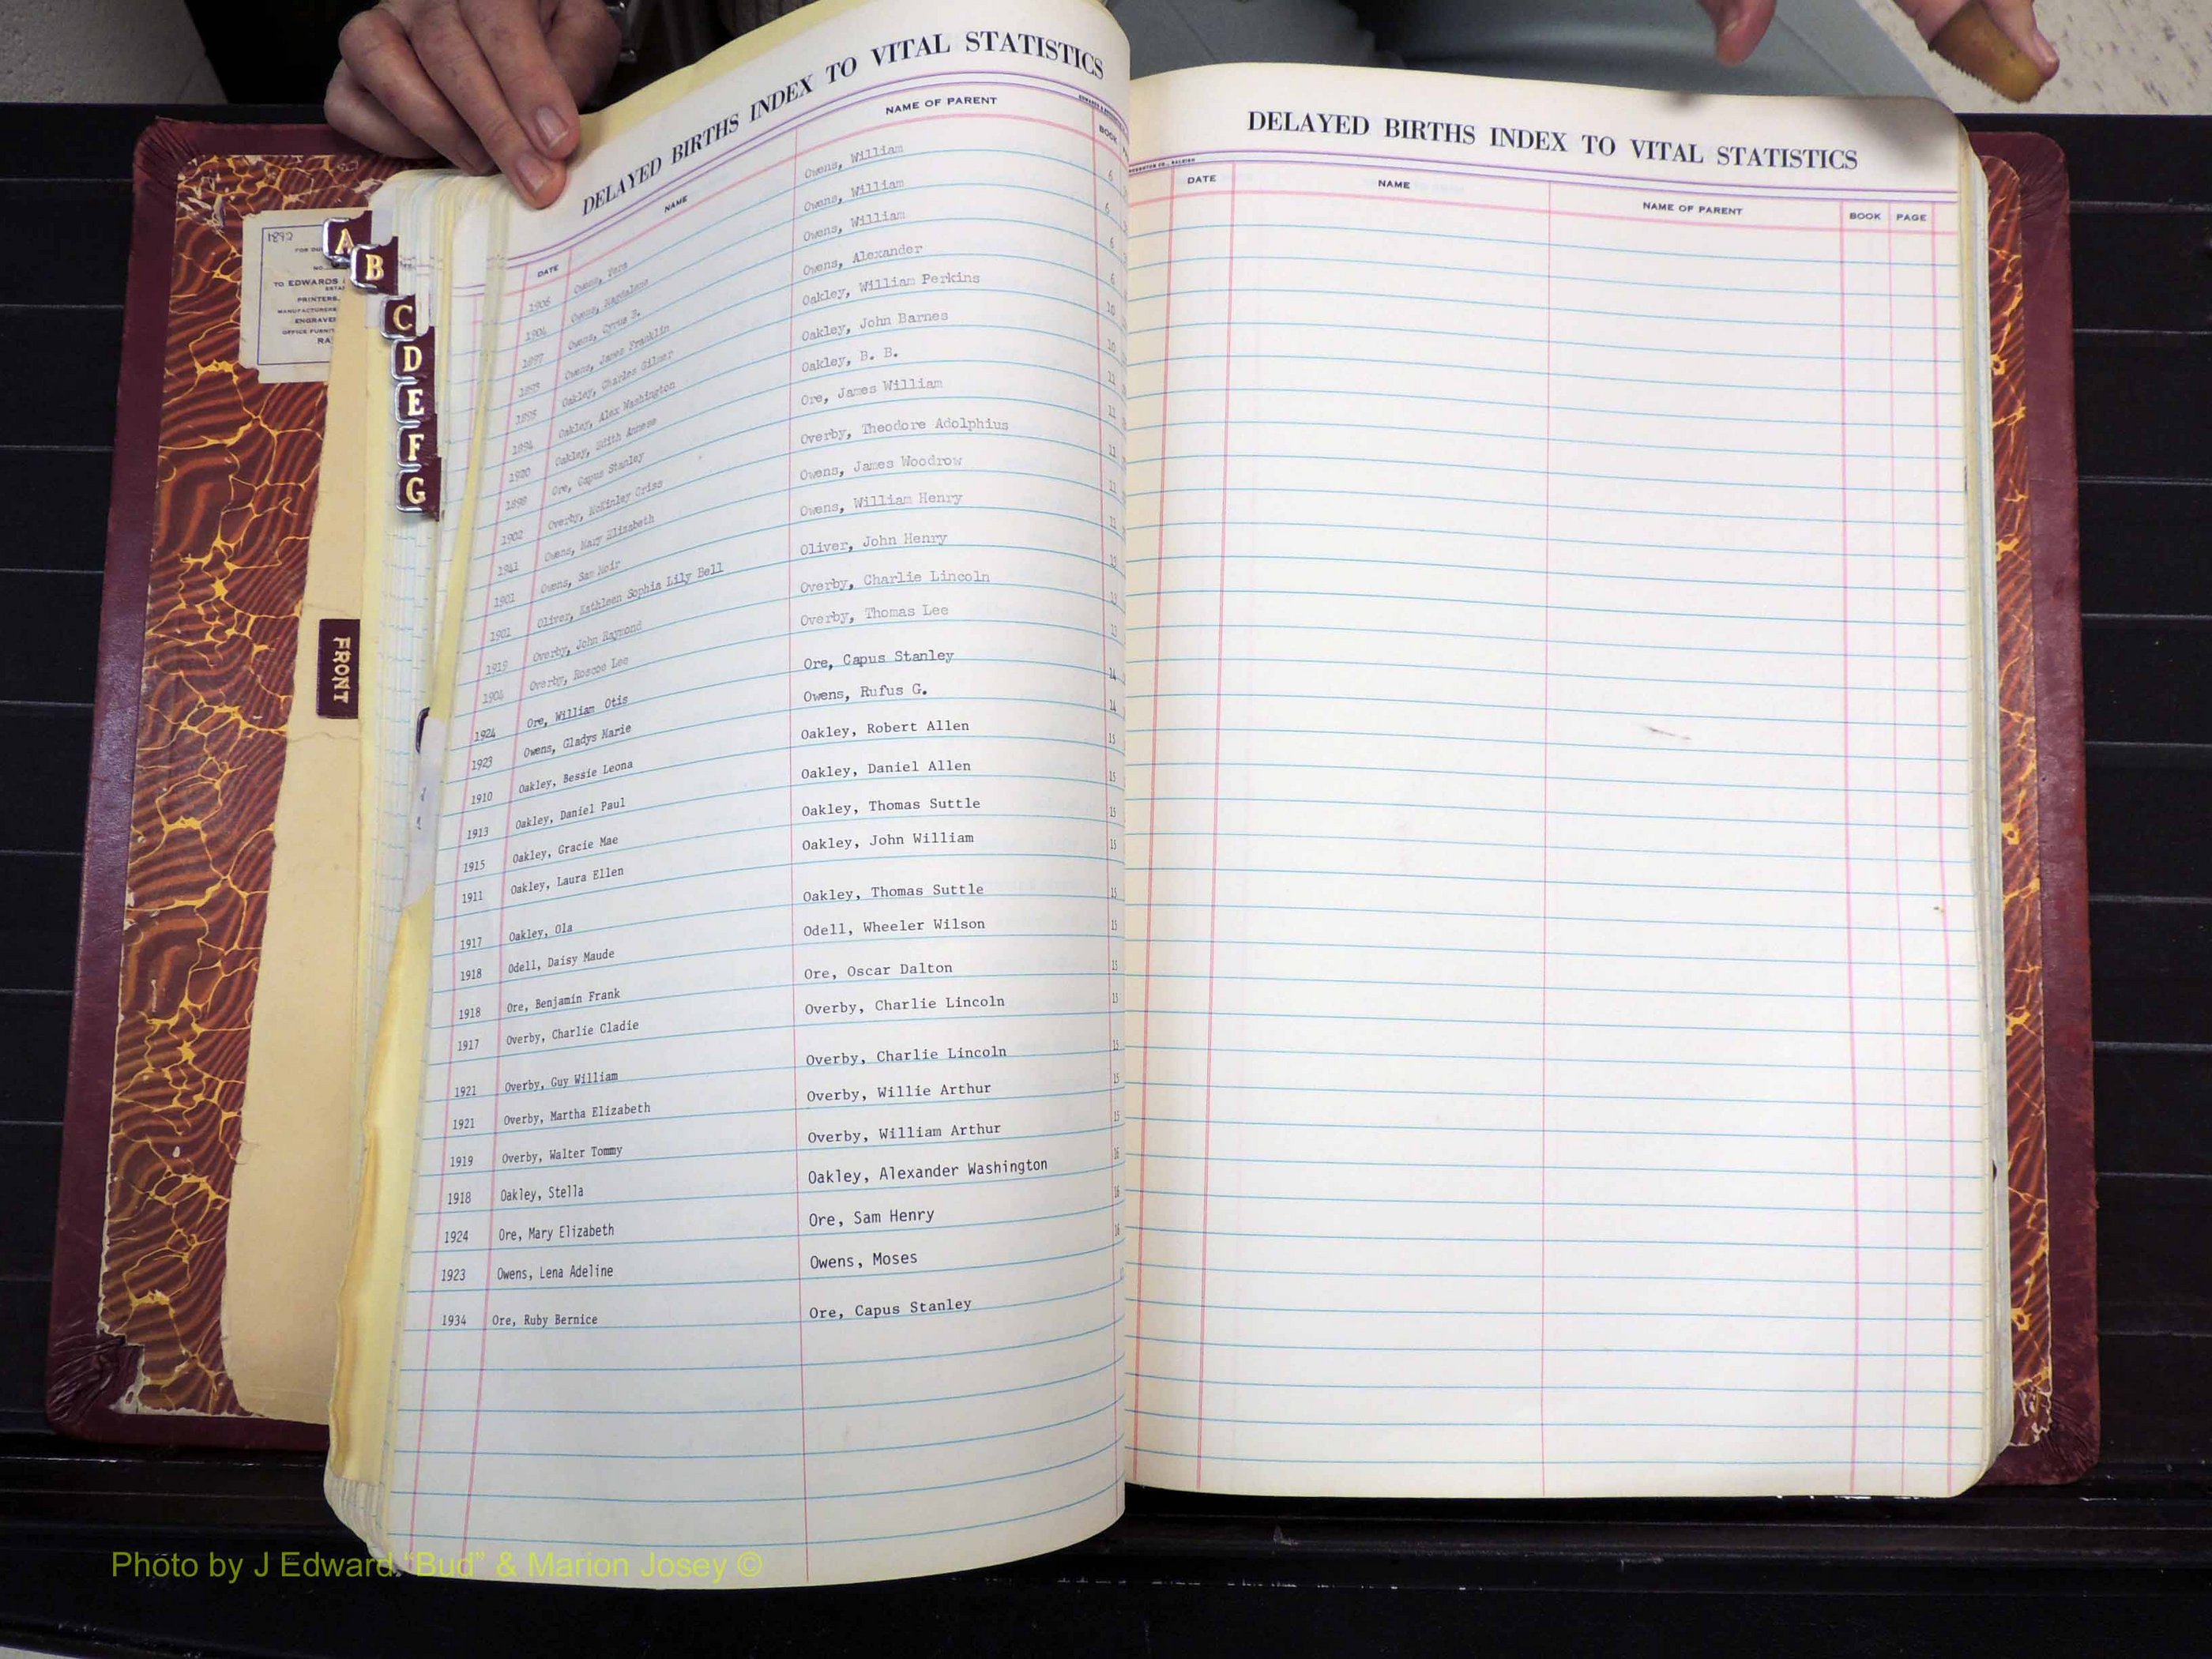 DELAYED BIRTHS INDEX TO VITAL STATISTICS
DATE NAME NAME OF PARENT BOOK
1906 Owens, Vera Owens, William 6
1904 Owens, Magdalene Owens, William 6
1897 Owens, Cyrus B. Owens, William 6
1893 Owens, James Franklin Owens, Alexander 6
1898 Oakley, Charles Gilmer Oakley, William Perkins 10
1894 Oakley, Alex Washington Oakley, John Barnes 10
1920 Oakley, Edith Annese Oakley, B. B. 11
1898 Ore, Capus Stanley Ore, James William 11
1902 Overby, McKinley Criss Overby, Theodore Adolphius 11
1941 Owens, Mary Elizabeth Owens, James Woodrow 11
1901 Owens, Sam Moir Owens, William Henry 11
1901 Oliver, Kathleen Sophia Lily Bell Oliver, John Henry 13
1919 Overby, John Raymond Overby, Charlie Lincoln 13
1904 Overby, Roscoe Lee Overby, Thomas Lee 13
1924 Ore, William Otis Ore, Capus Stanley 14
1923 Owens, Gladys Marie Owens, Rufus G. 14
1910 Oakley, Bessie Leona Oakley, Robert Allen 15
1913 Oakley, Daniel Paul Oakley, Daniel Allen 15
1915 Oakley, Gracie Mae Oakley, Thomas Suttle 15
1911 Oakley, Laura Ellen Oakley, John William 15
1917 Oakley, Ola Oakley, Thomas Suttle 15
1918 Odell, Daisy Maude Odell, Wheeler Wilson 15
1918 Ore, Benjamin Frank Ore, Oscar Dalton 15
1917 Overby, Charlie Cladie Overby, Charlie Lincoln 15
1921 Overby, Guy William Overby, Charlie Lincoln 15
1921 Overby, Martha Elizabeth Overby, Willie Arthur 15
1919 Overby, Walter Tommy Overby, William Arthur 15
1918 Oakley, Stella Oakley, Alexander Washington 16
1924 Ore, Mary Elizabeth Ore, Sam Henry 16
1923 Owens, Lena Adeline Owens, Moses 16
1934 Ore, Ruby Bernice Ore, Capus Stanley
DELAYED BIRTHS INDEX TO VITAL STATISTICS
DATE NAME NAME OF PARENT BOOK PAGE
A
B
C
D
E
F
G
FRONT
FOR DU
NO.
TO EDWARDS
ESTA
PRINTERS,
MANUFACTURERS
ENGRAVE
OFFICE FURNIT
RA
Photo by J Edward "Bud" & Marion Josey ©